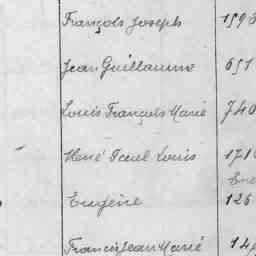 François Joseph
Jean Guillaume 651
Louis François Marie 740
René Paul Louis 171
Eugène 126
Francis Jean Marie 14